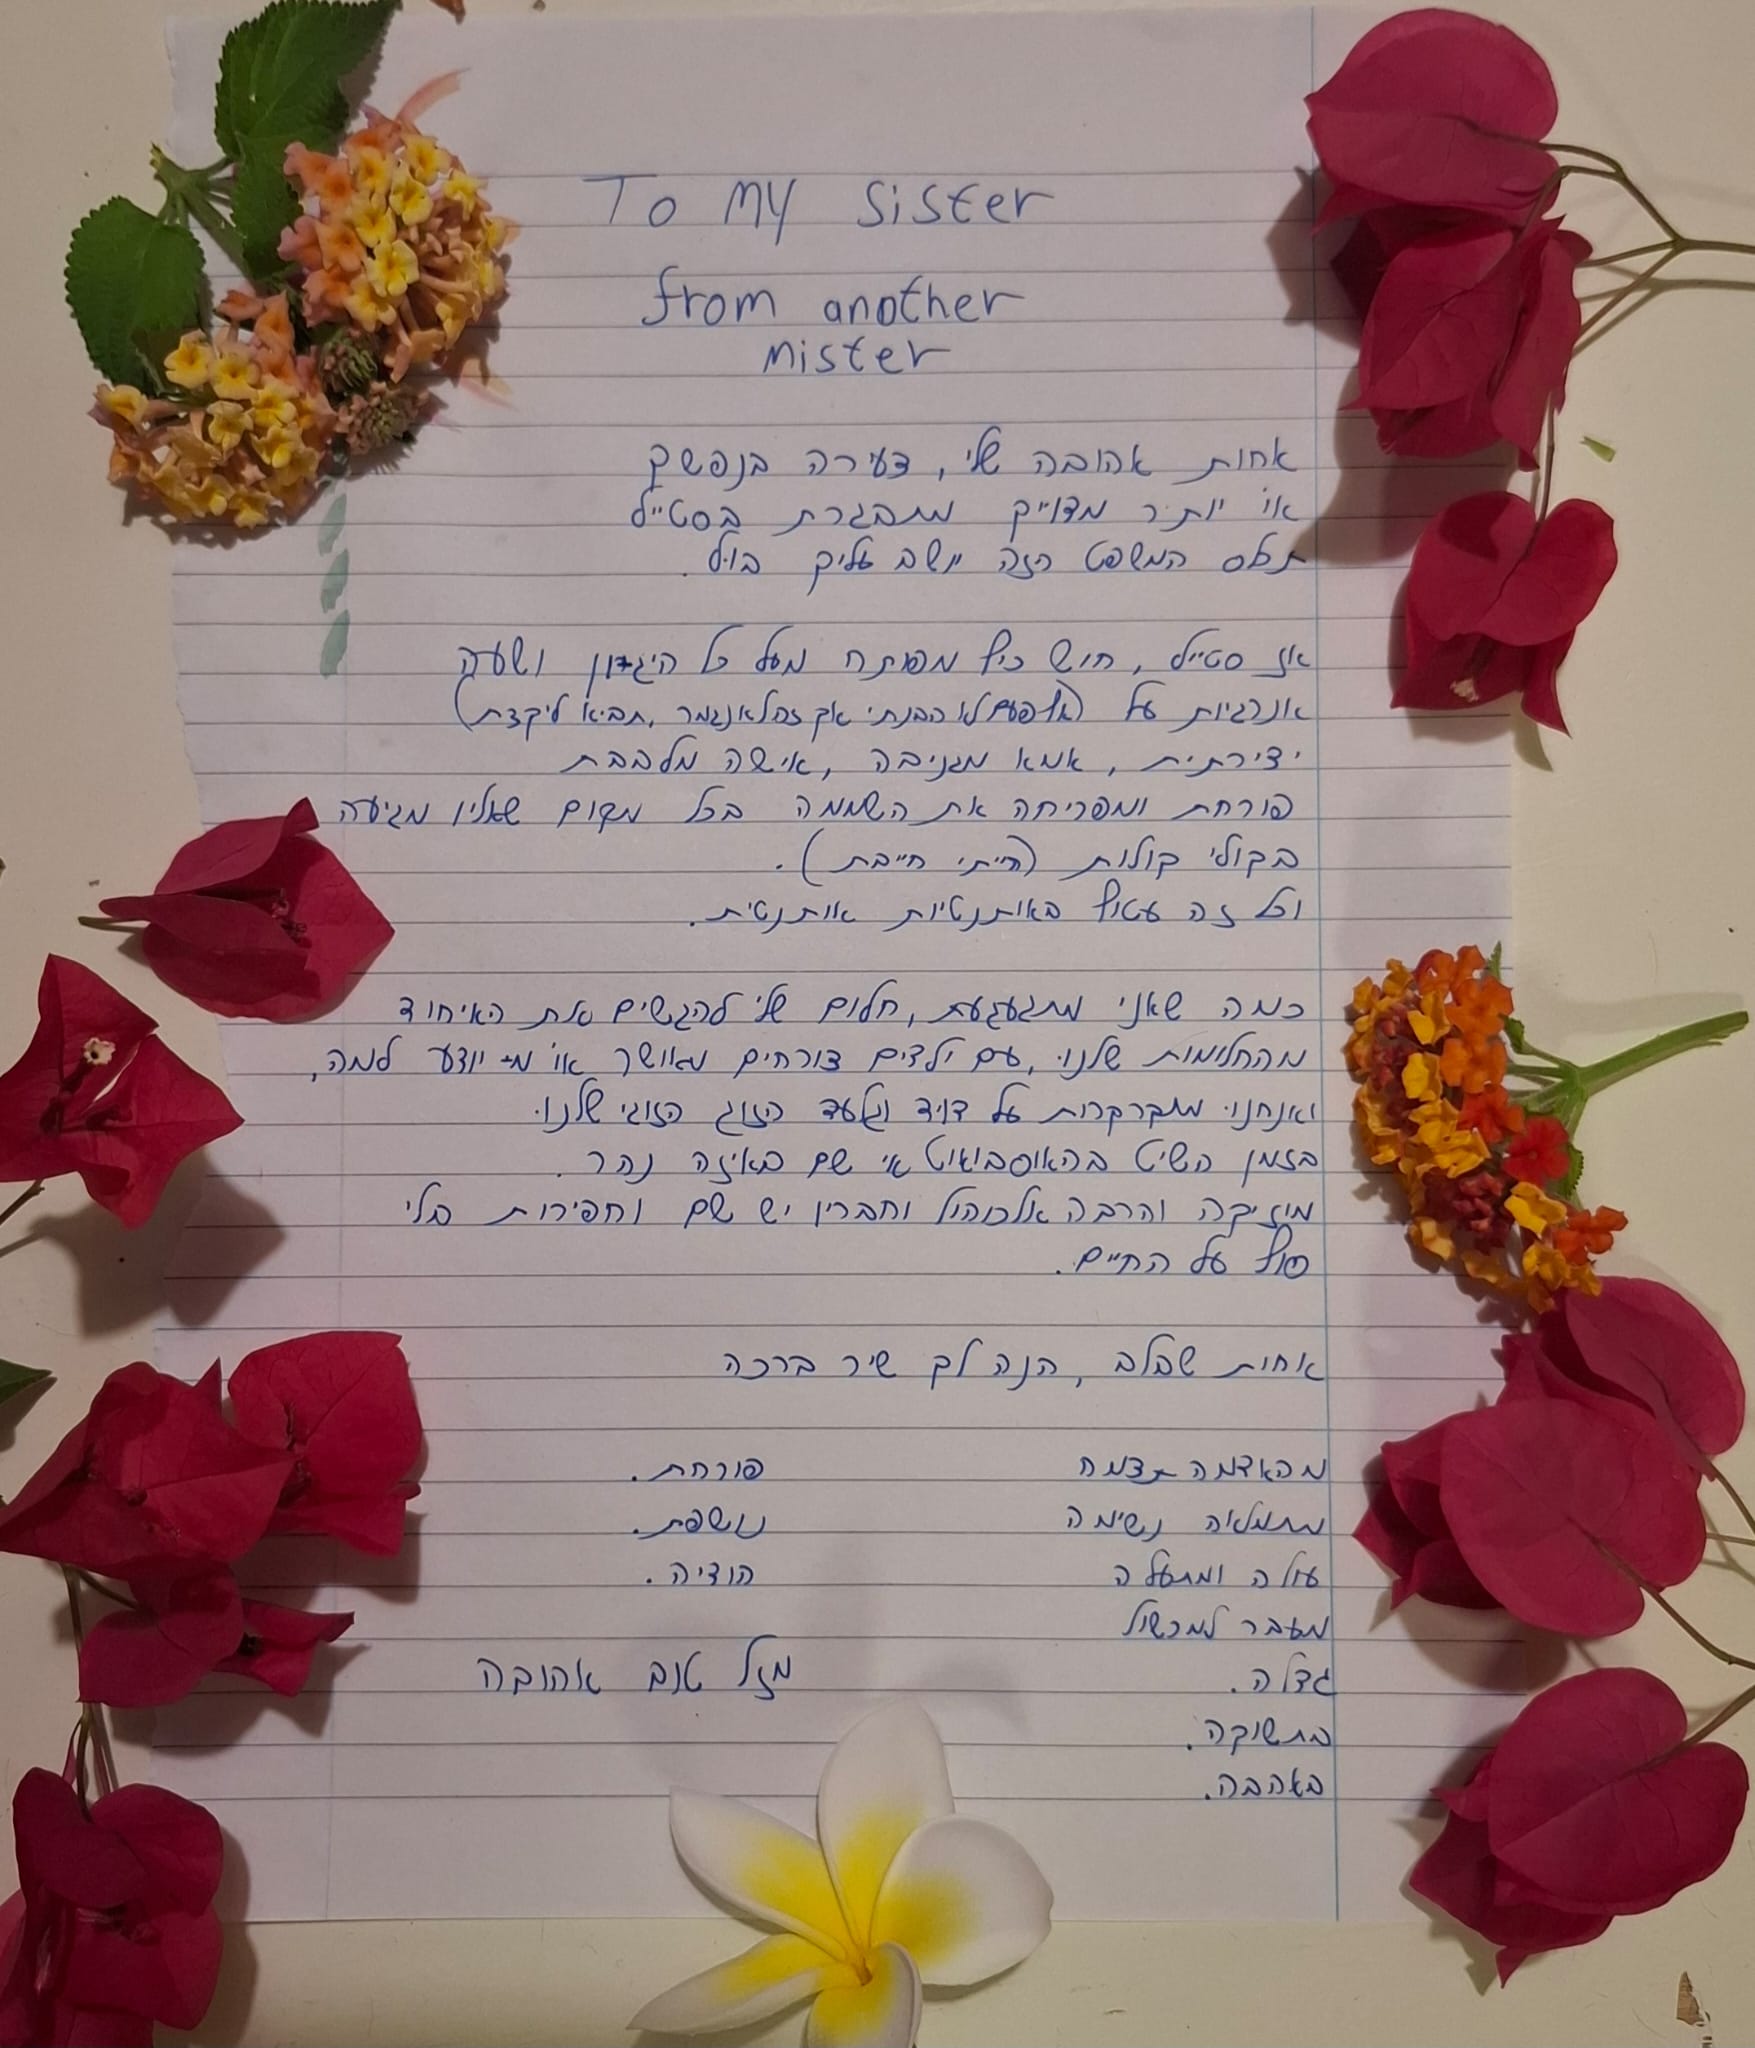 To my sister
from another
mister
אחות אהובה שלי, צעירה בנפשך
או יותר מדוייק מתבגרת בסטייל
תכלס המשפט הזה יושב עליך בול.
אז סטייל, חוש כיף מפותח מעל כל היגיון ושעה
אנרגיות על (אף פעם לא הבנתי איך זה לא נגמר, תביא ליקצת)
יצירתית, אמא מגניבה, אישה מלבבת
פורחת ומפריחה את השממה בכל מקום שאליו מגיעה
בקולי קולות (הייתי חייבת).
וכל זה עטוף באותנטיות אותנטית.
כמה שאני מתגעגעת, חלום שלי להגשים את האיחוד
מהחלימות שלנו, עם ילדים צורחים מאושר או מי יודע למה,
ואנחנו מתברברות על דויד וגלעד הזוג הזוגי שלנו
בזמן השיט בהאוסבואוט אי שם באיזה נהר.
מוזיקה והרבה אלכוהול וחברין יש שם וחפירות בלי
סוף על החיים.
אחות שבלב, הנה לך שיר ברכה
מהאדמה תצמח
מתמלאה נשימה
עולה ומתעלה
מעבר למכשול
גדלה.
בתשוקה.
באהבה.
פורחת.
נושפת.
הודיה.
מזל טוב אהובה